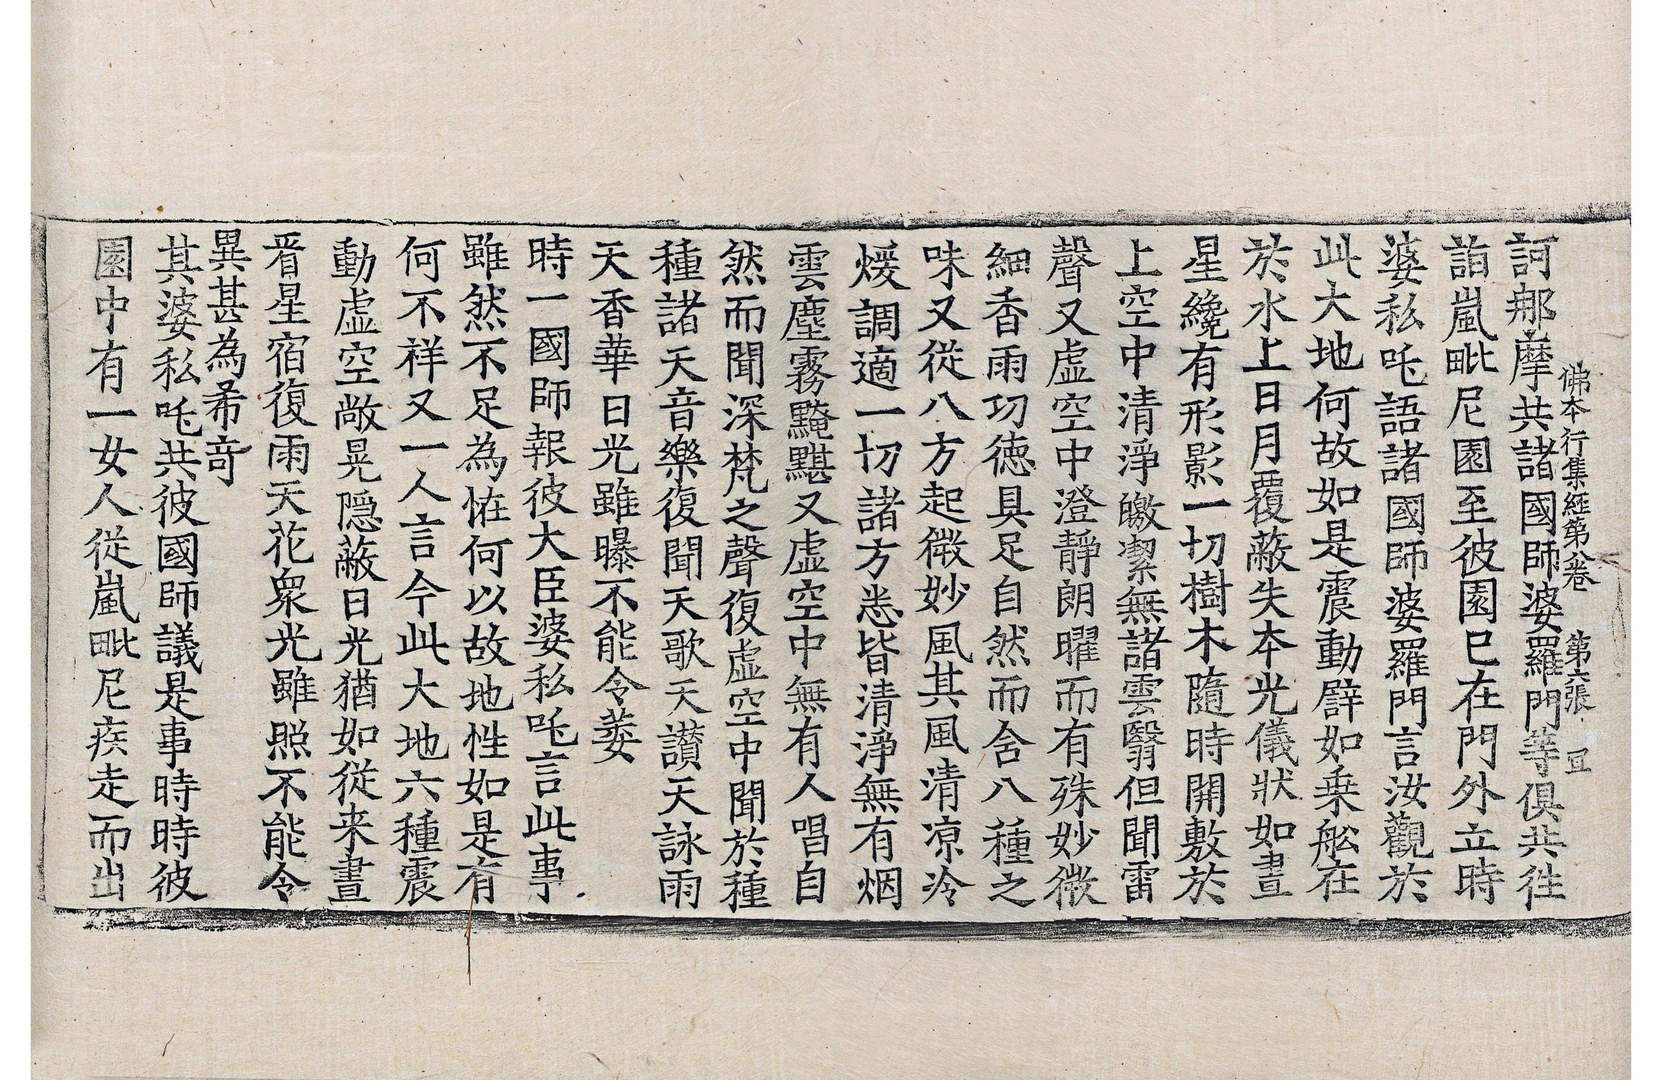 佛本行集經第八卷 第六張 冝
訶那摩共諸國師婆羅門等俱共往
詣嵐毗尼園至彼園已在門外立時
婆私吒語諸國師婆羅門言汝觀於
此大地何故如是震動譬如乗舩在
於水上日月覆蔽失本光儀狀如晝
星纔有形影一切樹木隨時開敷於
上空中清淨皦潔無諸雲翳但聞雷
聲又虛空中澄靜朗曜而有殊妙微
細香雨功徳具足自然而含八種之
味又從八方起微妙風其風清凉冷
煖調適一切諸方悉皆清淨無有烟
雲塵霧黤黮又虛空中無有人唱自
然而聞深梵之聲復虛空中聞於種
種諸天音樂復聞天歌天讚天詠雨
天香華日光雖曝不能令萎
時一國師報彼大臣婆私吒言此事
雖然不足為恠何以故地性如是有
何不祥又一人言今此大地六種震
動虛空敞晃隠蔽日光猶如從来晝
㫺星宿復雨天花衆光雖照不能令
異甚為希竒
其婆私吒共彼國師議是事時時彼
園中有一女人從嵐毗尼疾走而出